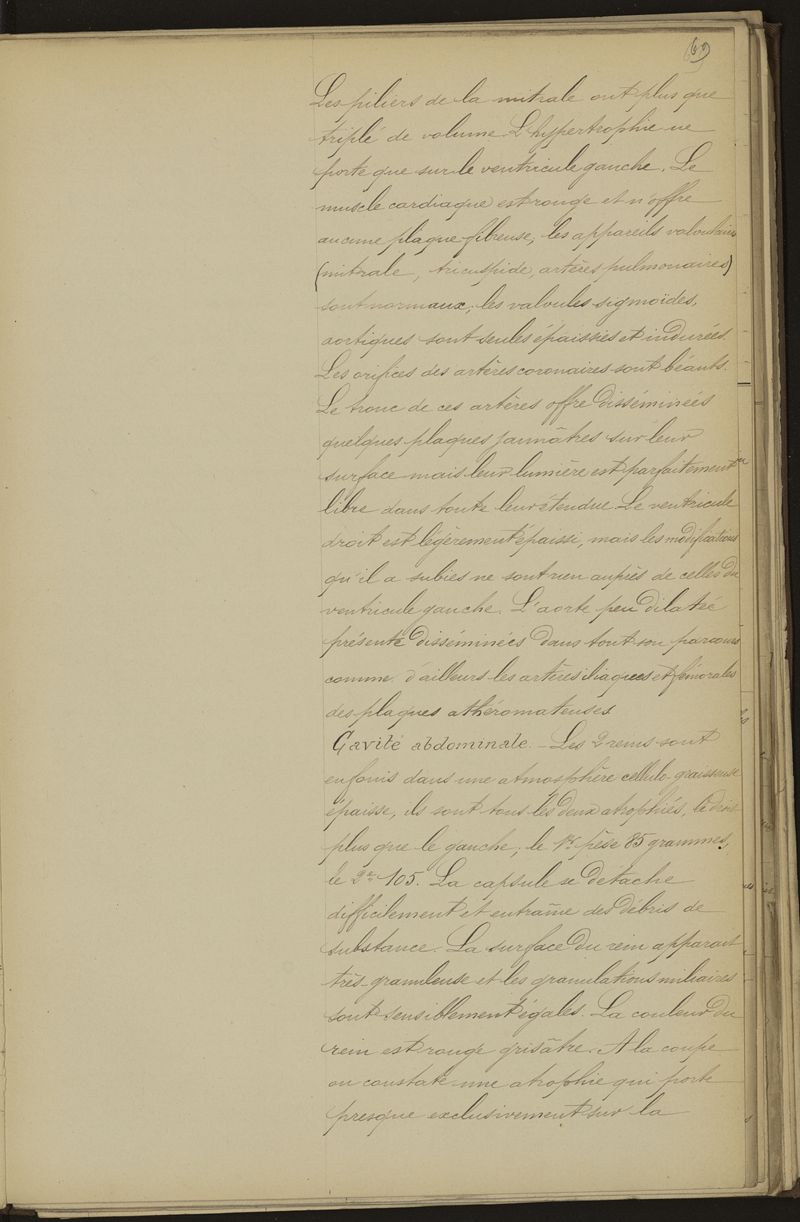 69
Les piliers de la mitrale ont plus que
triplé de volume. L'hypertrophie ne
porte que sur le ventricule gauche. Le
muscle cardiaque est rouge et n'offre
aucune plaque fibreuse, les appareils valvulaires
(mitrale, tricuspide, artères pulmonaires)
sont normaux; les valvules sigmoïdes,
aortiques sont seules épaissies et indurées.
Les orifices des artères coronaires sont béants.
Le tronc de ces artères offre disséminées
quelques plaques jaunâtres sur leur
surface mais leur lumière est parfaitement
libre dans toute leur étendue. Le ventricule
droit est légèrement épaissi, mais les modifications
qu'il a subies ne sont rien auprès de celles du
ventricule gauche. L'aorte peu dilatée
présente disséminées dans tout son parcours
comme d'ailleurs les artères iliaques et fémorales
des plaques athéromateuses
Cavité abdominale. - Les 2 reins sont
enfouis dans une atmosphère cellulo-graisseuse
épaisse, ils sont tous les deux atrophiés, le droit
plus que le gauche; le 1er pèse 85 grammes,
le 2me 105. La capsule se détache
difficilement et entraîne des débris de
substance. La surface du rein apparait
très granuleuse et les granulations miliaires
sont sensiblement égales. La couleur du
rein est rouge grisâtre. A la coupe
on constate une atrophie qui porte
presque exclusivement sur la